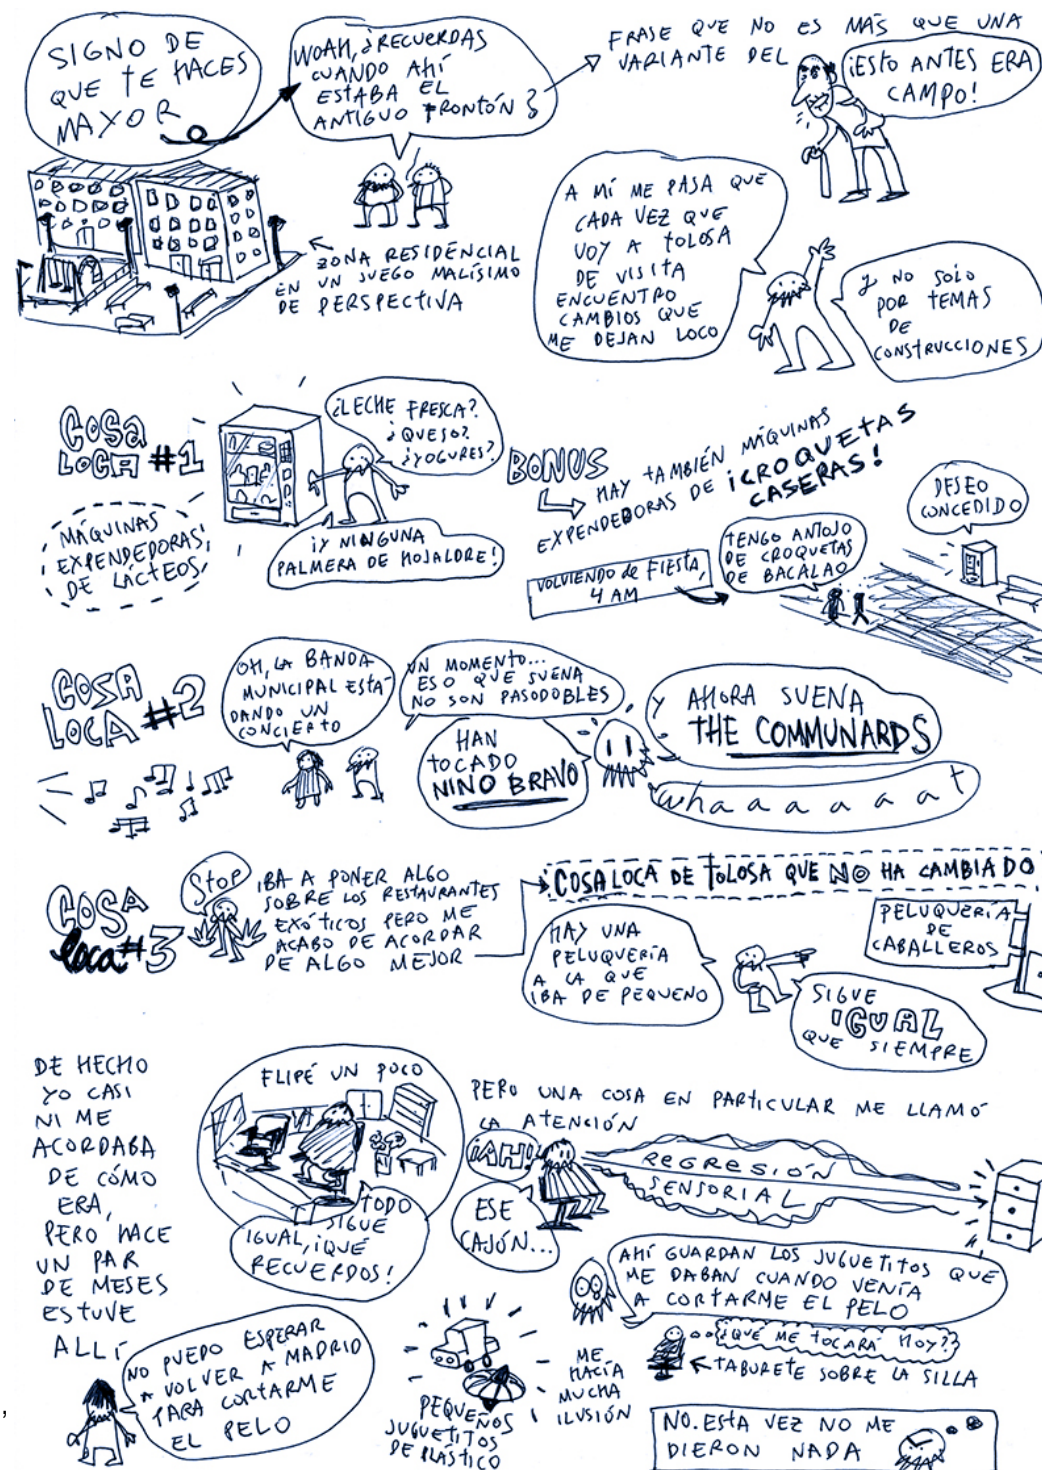 SIGNO DE
QUE TE HACES
MAYOR
WOAH, ¿RECUERDAS
CUANDO AHÍ
ESTABA EL
ANTIGUO FRONTÓN?
FRASE QUE NO ES MÁS QUE UNA
VARIANTE DEL
¡ESTO ANTES ERA
CAMPO!
ZONA RESIDENCIAL
EN UN JUEGO MALÍSIMO
DE PERSPECTIVA
A MÍ ME PASA QUE
CADA VEZ QUE
VOY A TOLOSA
DE VISITA
ENCUENTRO
CAMBIOS QUE
ME DEJAN LOCO
Y NO SOLO
POR TEMAS
DE
CONSTRUCCIONES
COSA
LOCA #1
MÁQUINAS
EXPENDEDORAS
DE LÁCTEOS
¿LECHE FRESCA?
¿QUESO?
¿YOGURES?
¡Y NINGUNA
PALMERA DE HOJALDRE!
BONUS
HAY TAMBIÉN MÁQUINAS
EXPENDEDORAS DE ¡CROQUETAS
CASERAS!
VOLVIENDO de FIESTA,
4 AM
TENGO ANTOJO
DE CROQUETAS
DE BACALAO
DESEO
CONCEDIDO
COSA
LOCA #2
OH, LA BANDA
MUNICIPAL ESTÁ
DANDO UN
CONCIERTO
UN MOMENTO...
ESO QUE SUENA
NO SON PASODOBLES
HAN
TOCADO
NINO BRAVO
Y AHORA SUENA
THE COMMUNARDS
whaaaaaat
COSA
loca #3
STOP
IBA A PONER ALGO
SOBRE LOS RESTAURANTES
EXÓTICOS PERO ME
ACABO DE ACORDAR
DE ALGO MEJOR
COSA LOCA DE TOLOSA QUE NO HA CAMBIADO
HAY UNA
PELUQUERÍA
A LA QUE
IBA DE PEQUEÑO
PELUQUERÍA
DE
CABALLEROS
SIGUE
IGUAL
QUE SIEMPRE
DE HECHO
YO CASI
NI ME
ACORDABA
DE CÓMO
ERA,
PERO HACE
UN PAR
DE MESES
ESTUVE
ALLÍ
FLIPÉ UN POCO
TODO
SIGUE
IGUAL, ¡QUÉ
RECUERDOS!
PERO UNA COSA EN PARTICULAR ME LLAMÓ
LA ATENCIÓN
¡AH!
ESE
CAJÓN...
REGRESIÓN
SENSORIAL
AHÍ GUARDAN LOS JUGUETITOS QUE
ME DABAN CUANDO VENÍA
A CORTARME EL PELO
NO PUEDO ESPERAR
A VOLVER A MADRID
PARA CORTARME
EL PELO
PEQUEÑOS
JUGUETITOS
DE PLÁSTICO
ME
HACÍA
MUCHA
ILUSIÓN
¿QUÉ ME TOCARÁ HOY?
TABURETE SOBRE LA SILLA
NO. ESTA VEZ NO ME
DIERON NADA